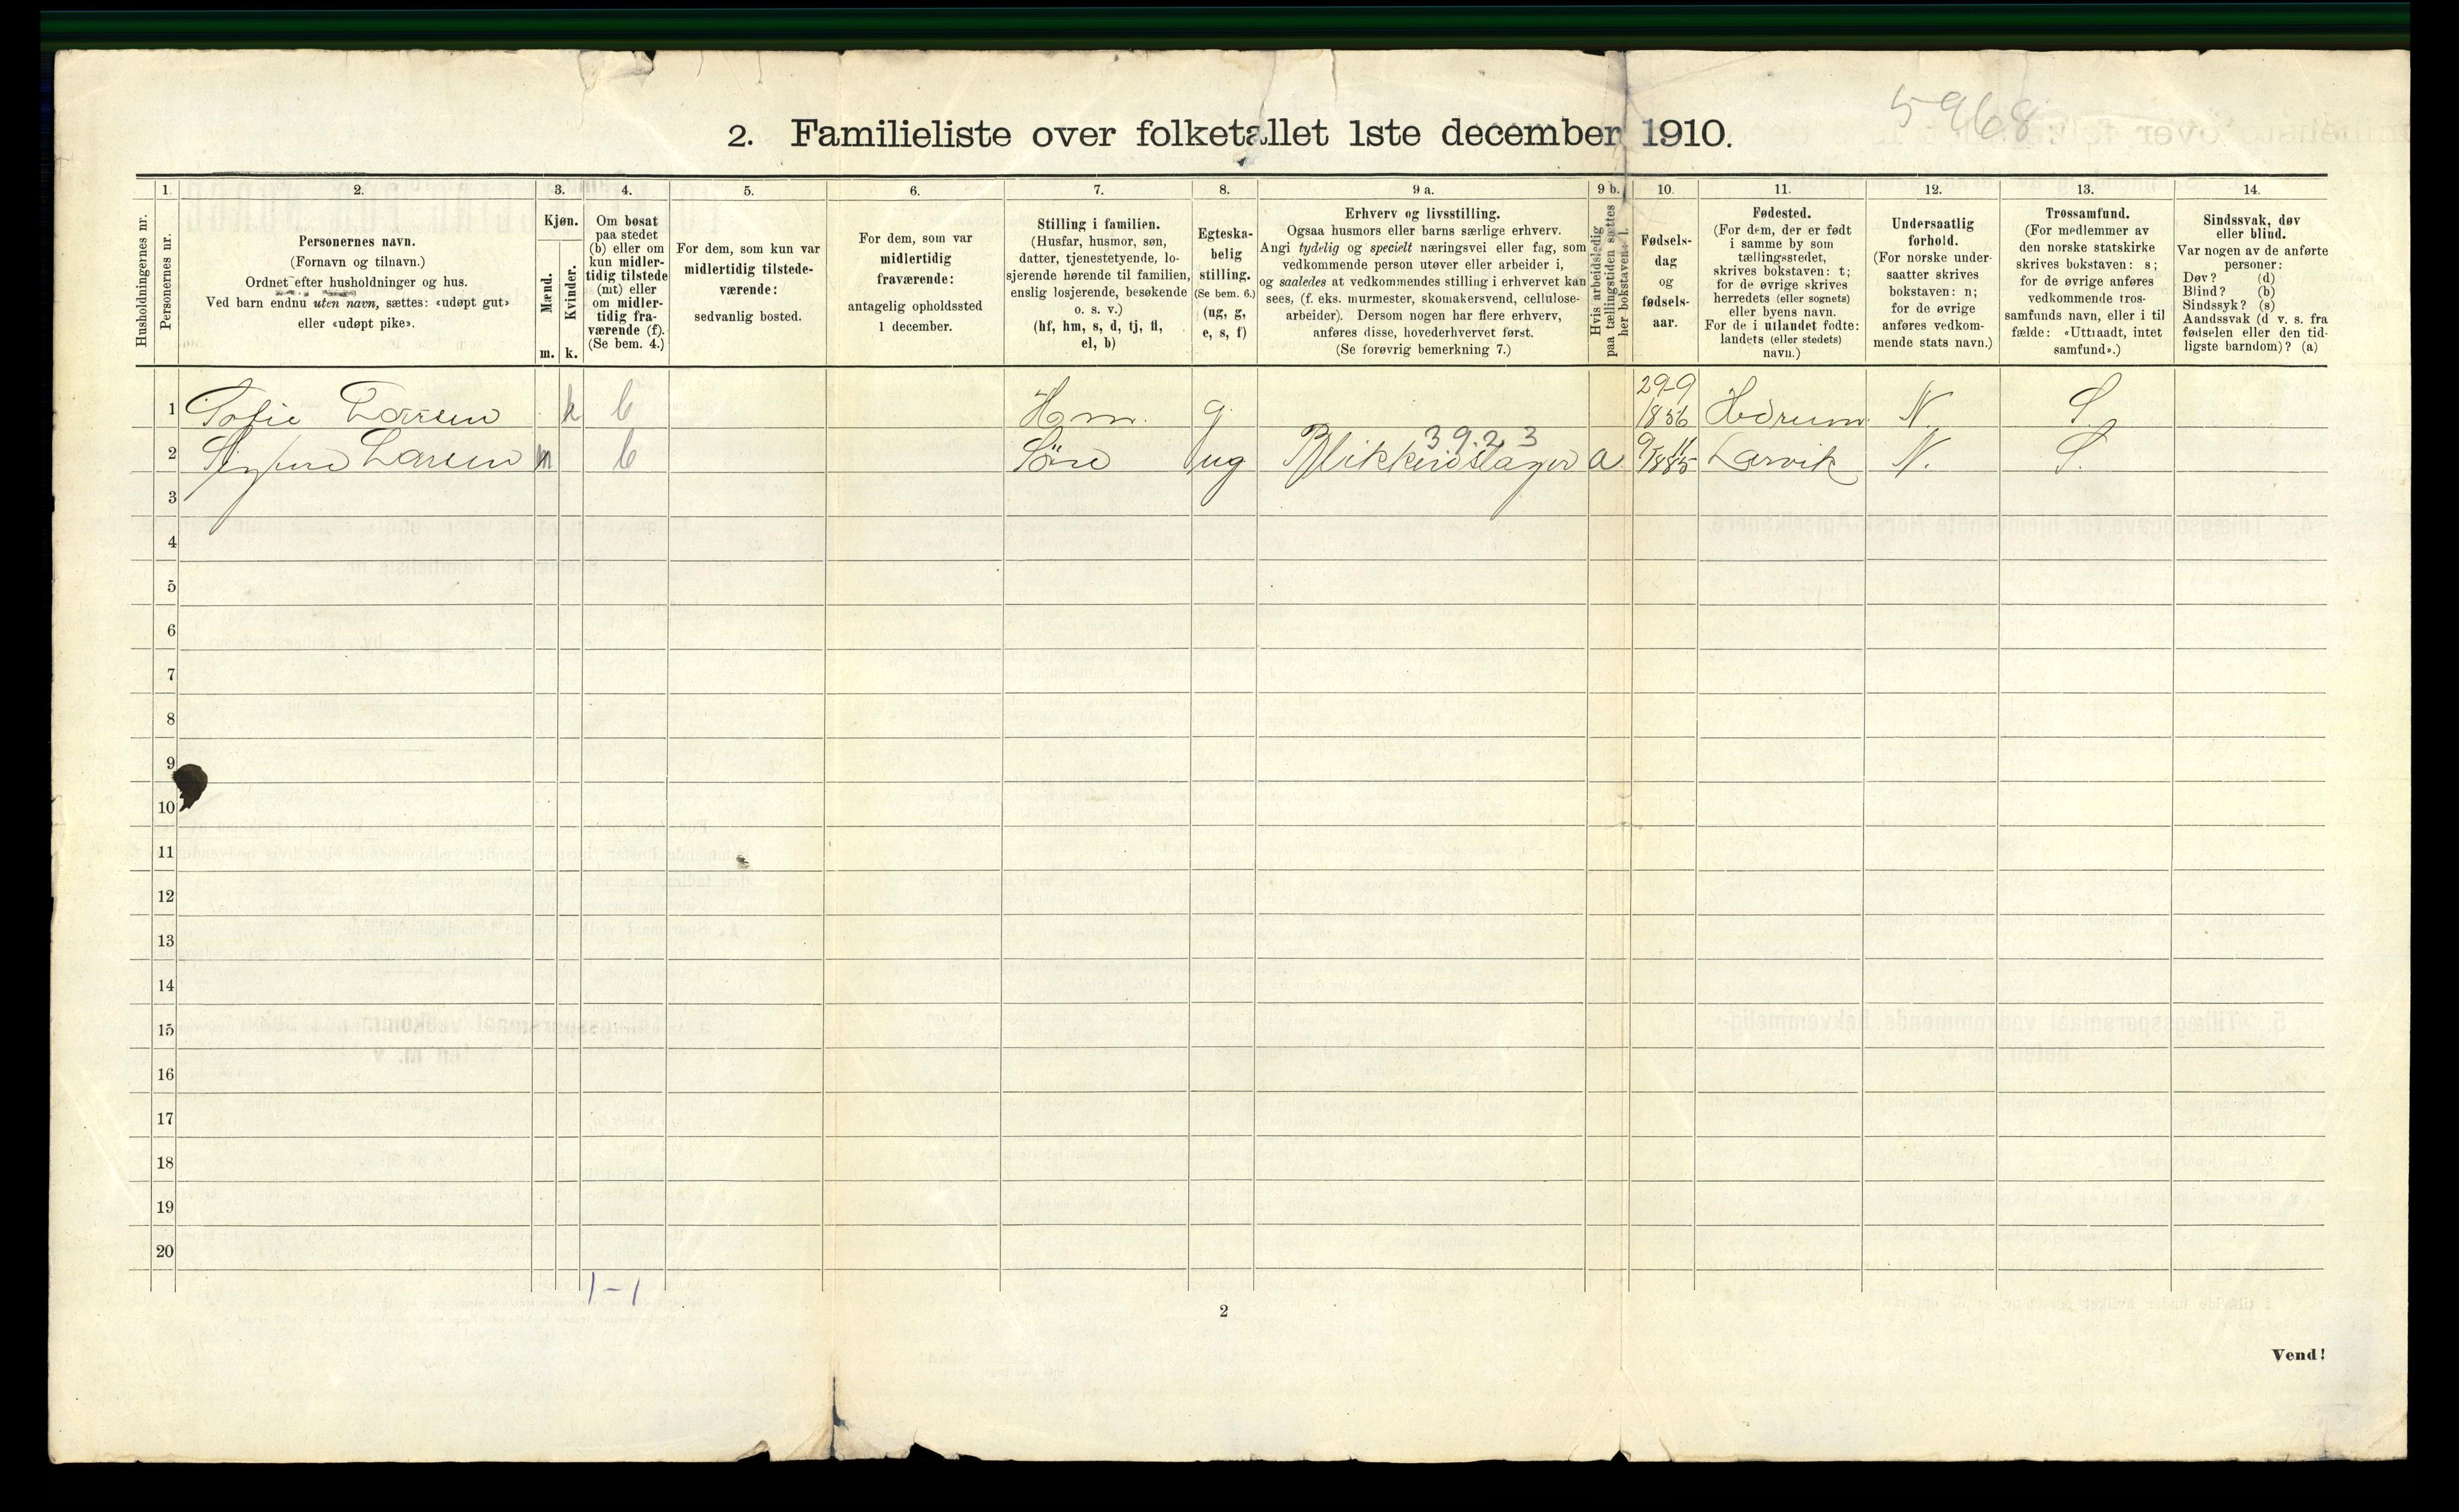 5968
2. Familieliste over folketallet 1ste december 1910.
1. 2. 3. 4. 5. 6. 7. 8. 9 a. 9 b. 10. 11. 12. 13. 14.
Husholdningernes nr.
Personernes nr.
Personernes navn.
(Fornavn og tilnavn.)
Ordnet efter husholdninger og hus.
Ved barn endnu uten navn, sættes: «udøpt gut»
eller «udøpt pike».
Kjøn.
Mænd.
Kvinder.
m. k.
Om bosat
paa stedet
(b) eller om
kun midler-
tidig tilstede
(mt) eller
om midler-
tidig fra-
værende (f).
(Se bem. 4.)
For dem, som kun var
midlertidig tilstede-
værende:
sedvanlig bosted.
For dem, som var
midlertidig
fraværende:
antagelig opholdssted
1 december.
Stilling i familien.
(Husfar, husmor, søn,
datter, tjenestetyende, lo-
sjerende hørende til familien,
enslig losjerende, besøkende
o. s. v.)
(hf, hm, s, d, tj, fl,
el, b)
Egteska-
belig
stilling.
(Se bem. 6.)
(ug, g,
e, s, f)
Erhverv og livsstilling.
Ogsaa husmors eller barns særlige erhverv.
Angi tydelig og specielt næringsvei eller fag, som
vedkommende person utøver eller arbeider i,
og saaledes at vedkommendes stilling i erhvervet kan
sees, (f. eks. murmester, skomakersvend, cellulose-
arbeider). Dersom nogen har flere erhverv,
anføres disse, hovederhvervet først.
(Se forøvrig bemerkning 7.)
Hvis arbeidsledig
paa tællingstiden sættes
her bokstaven: l.
Fødsels-
dag
og
fødsels-
aar.
Fødested.
(For dem, der er født
i samme by som
tællingsstedet,
skrives bokstaven: t;
for de øvrige skrives
herredets (eller sognets)
eller byens navn.
For de i utlandet fødte:
landets (eller stedets)
navn.)
Undersaatlig
forhold.
(For norske under-
saatter skrives
bokstaven: n;
for de øvrige
anføres vedkom-
mende stats navn.)
Trossamfund.
(For medlemmer av
den norske statskirke
skrives bokstaven: s;
for de øvrige anføres
vedkommende tros-
samfunds navn, eller i til
fælde: «Uttraadt, intet
samfund».)
Sindssvak, døv
eller blind.
Var nogen av de anførte
personer:
Døv? (d)
Blind? (b)
Sindssyk? (s)
Aandssvak (d v. s. fra
fødselen eller den tid-
ligste barndom)? (a)
1 Sofie Larsen k b Hm. g. 29-9 1856 Hedrum N. S.
3923
2 Larsen m b Søn ug Blikkenslager a Larvik N. S.
3
4
5
6
7
8
9
10
11
12
13
14
15
16
17
18
19
20
1-1
2
Vend!